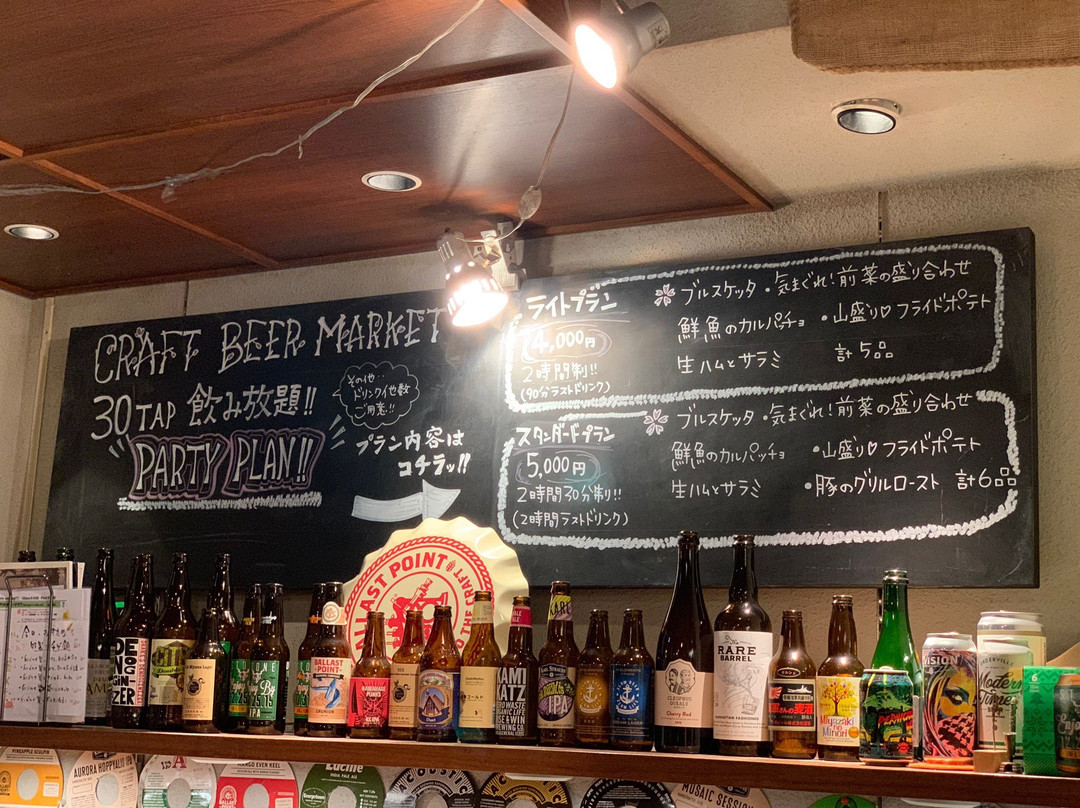 CRAFT BEER MARKET
30TAP 飲み放題!!
PARTY PLAN!!
その他‥
ドリンク他数
ご用意!!
プラン内容は
コチラッ!!
ライトプラン
4,000円
2時間制!!
(90分ラストドリンク)
ブルスケッタ ・気まぐれ!前菜の盛り合わせ
鮮魚のカルパッチョ ・山盛り♡フライドポテト
生ハムとサラミ 計5品
スタンダードプラン
5,000円
2時間30分制!!
(2時間ラストドリンク)
ブルスケッタ ・気まぐれ!前菜の盛り合わせ
鮮魚のカルパッチョ ・山盛り♡フライドポテト
生ハムとサラミ ・豚のグリルロースト 計6品
BALLAST POINT
THE CRAFT
BALLAST
POINT
KAMI
KATZ
IPA
Cherry Red
RARE
BARREL
Miyazaki
Minori
VISION
Modern
Times
PINEAPPLE SCULPIN
AURORA HOPPYALIS IPA
MANGO EVEN KEEL
Lucille
INDIA PALE ALE
ACOUSTIC
MOSAIC SESSION